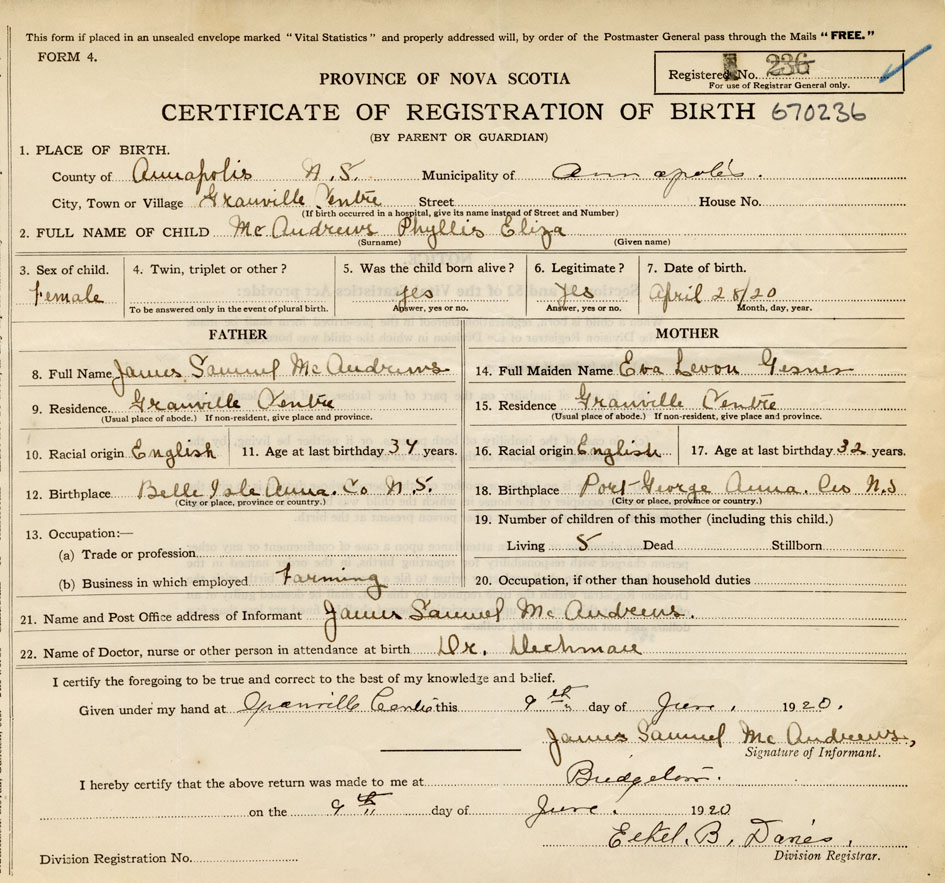 This form if placed in an unsealed envelope marked "Vital Statistics" and properly addressed will, by order of the Postmaster General pass through the Mails "FREE."
FORM 4.
Registered No. 236
For use of Registrar General only.
PROVINCE OF NOVA SCOTIA
CERTIFICATE OF REGISTRATION OF BIRTH 670236
(BY PARENT OR GUARDIAN)
1. PLACE OF BIRTH.
County of Annapolis N.S. Municipality of Annapolis.
City, Town or Village Granville Centre Street House No.
(If birth occurred in a hospital, give its name instead of Street and Number)
2. FULL NAME OF CHILD McAndrews Phyllis Eliza
(Surname) (Given name)
3. Sex of child. 4. Twin, triplet or other? 5. Was the child born alive? 6. Legitimate? 7. Date of birth.
Female yes Yes April 28/20
To be answered only in the event of plural birth. Answer, yes or no. Answer, yes or no. Month, day, year.
FATHER MOTHER
8. Full Name James Samuel McAndrews 14. Full Maiden Name Eva Levon Gesner
9. Residence. Granville Centre 15. Residence Granville Centre
(Usual place of abode.) If non-resident, give place and province. (Usual place of abode.) If non-resident, give place and province.
10. Racial origin English 11. Age at last birthday 34 years. 16. Racial origin English 17. Age at last birthday 32 years.
12. Birthplace Belle Isle Anna. Co N.S. 18. Birthplace Port George Anna. Co N.S
(City or place, province or country.) (City or place, province or country.)
13. Occupation:— 19. Number of children of this mother (including this child.)
(a) Trade or profession Living 5 Dead Stillborn
(b) Business in which employed Farming 20. Occupation, if other than household duties
21. Name and Post Office address of Informant James Samuel McAndrews.
22. Name of Doctor, nurse or other person in attendance at birth Dr. Dechman
I certify the foregoing to be true and correct to the best of my knowledge and belief.
Given under my hand at Granville Centre this 9th day of June, 1920.
James Samuel McAndrews,
Signature of Informant.
I hereby certify that the above return was made to me at Bridgetown.
on the 9th day of June. 1920
Ethel. B. Davies.
Division Registrar.
Division Registration No.